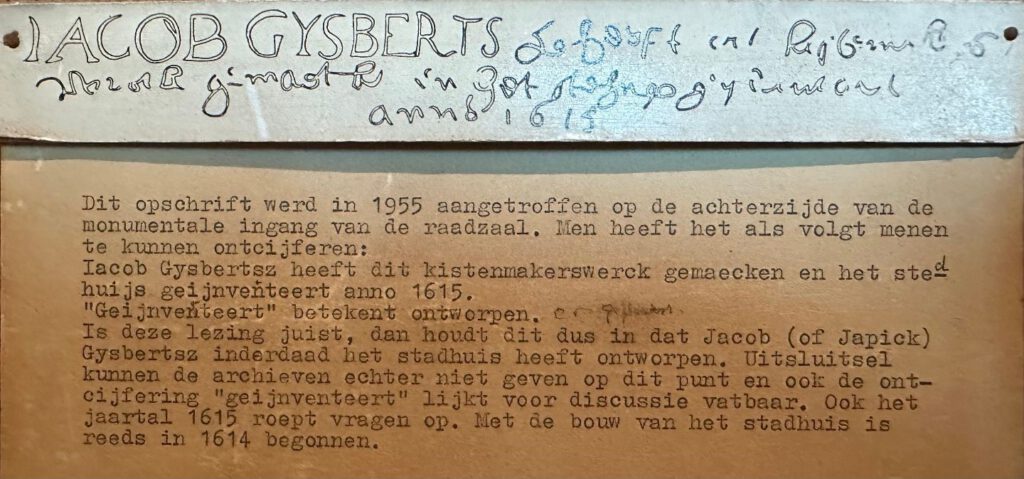 IACOB GYSBERTS
anno 1615
Dit opschrift werd in 1955 aangetroffen op de achterzijde van de
monumentale ingang van de raadzaal. Men heeft het als volgt menen
te kunnen ontcijferen:
Iacob Gysbertsz heeft dit kistenmakerswerck gemaecken en het sted
huijs geijnventeert anno 1615.
"Geijnventeert" betekent ontworpen.
Is deze lezing juist, dan houdt dit dus in dat Jacob (of Japick)
Gysbertsz inderdaad het stadhuis heeft ontworpen. Uitsluitsel
kunnen de archieven echter niet geven op dit punt en ook de ont-
cijfering "geijnventeert" lijkt voor discussie vatbaar. Ook het
jaartal 1615 roept vragen op. Met de bouw van het stadhuis is
reeds in 1614 begonnen.